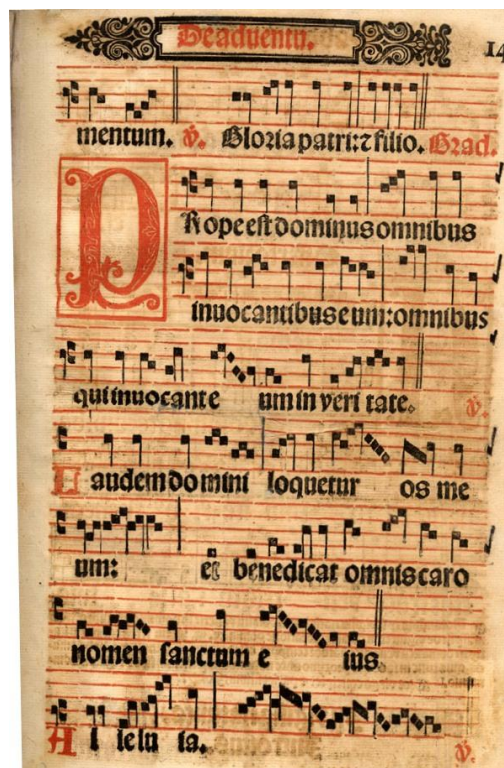 De aduentu.
14
mentum. ℣. Gloria patri: ⁊ filio. Grad.
PRope est dominus omnibus
inuocantibus eum: omnibus
qui inuocant e um in veri tate. ℣.
Laudem domini loquetur os me
um: et benedicat omnis caro
nomen sanctum e ius
Al lelu ia. ℣.